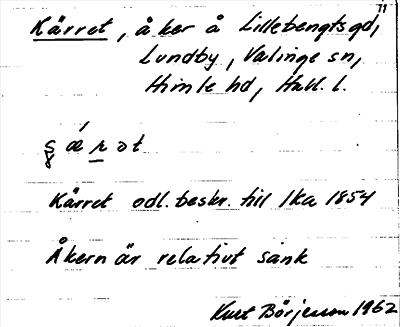 11
Kärret, åker å Lillebengtsgd,
Lundby, Valinge sn,
Himle hd, Hall. l.
Kärret odl. beskr. till lka 1854
Åkern är relativt sank
Kurt Börjesson 1962